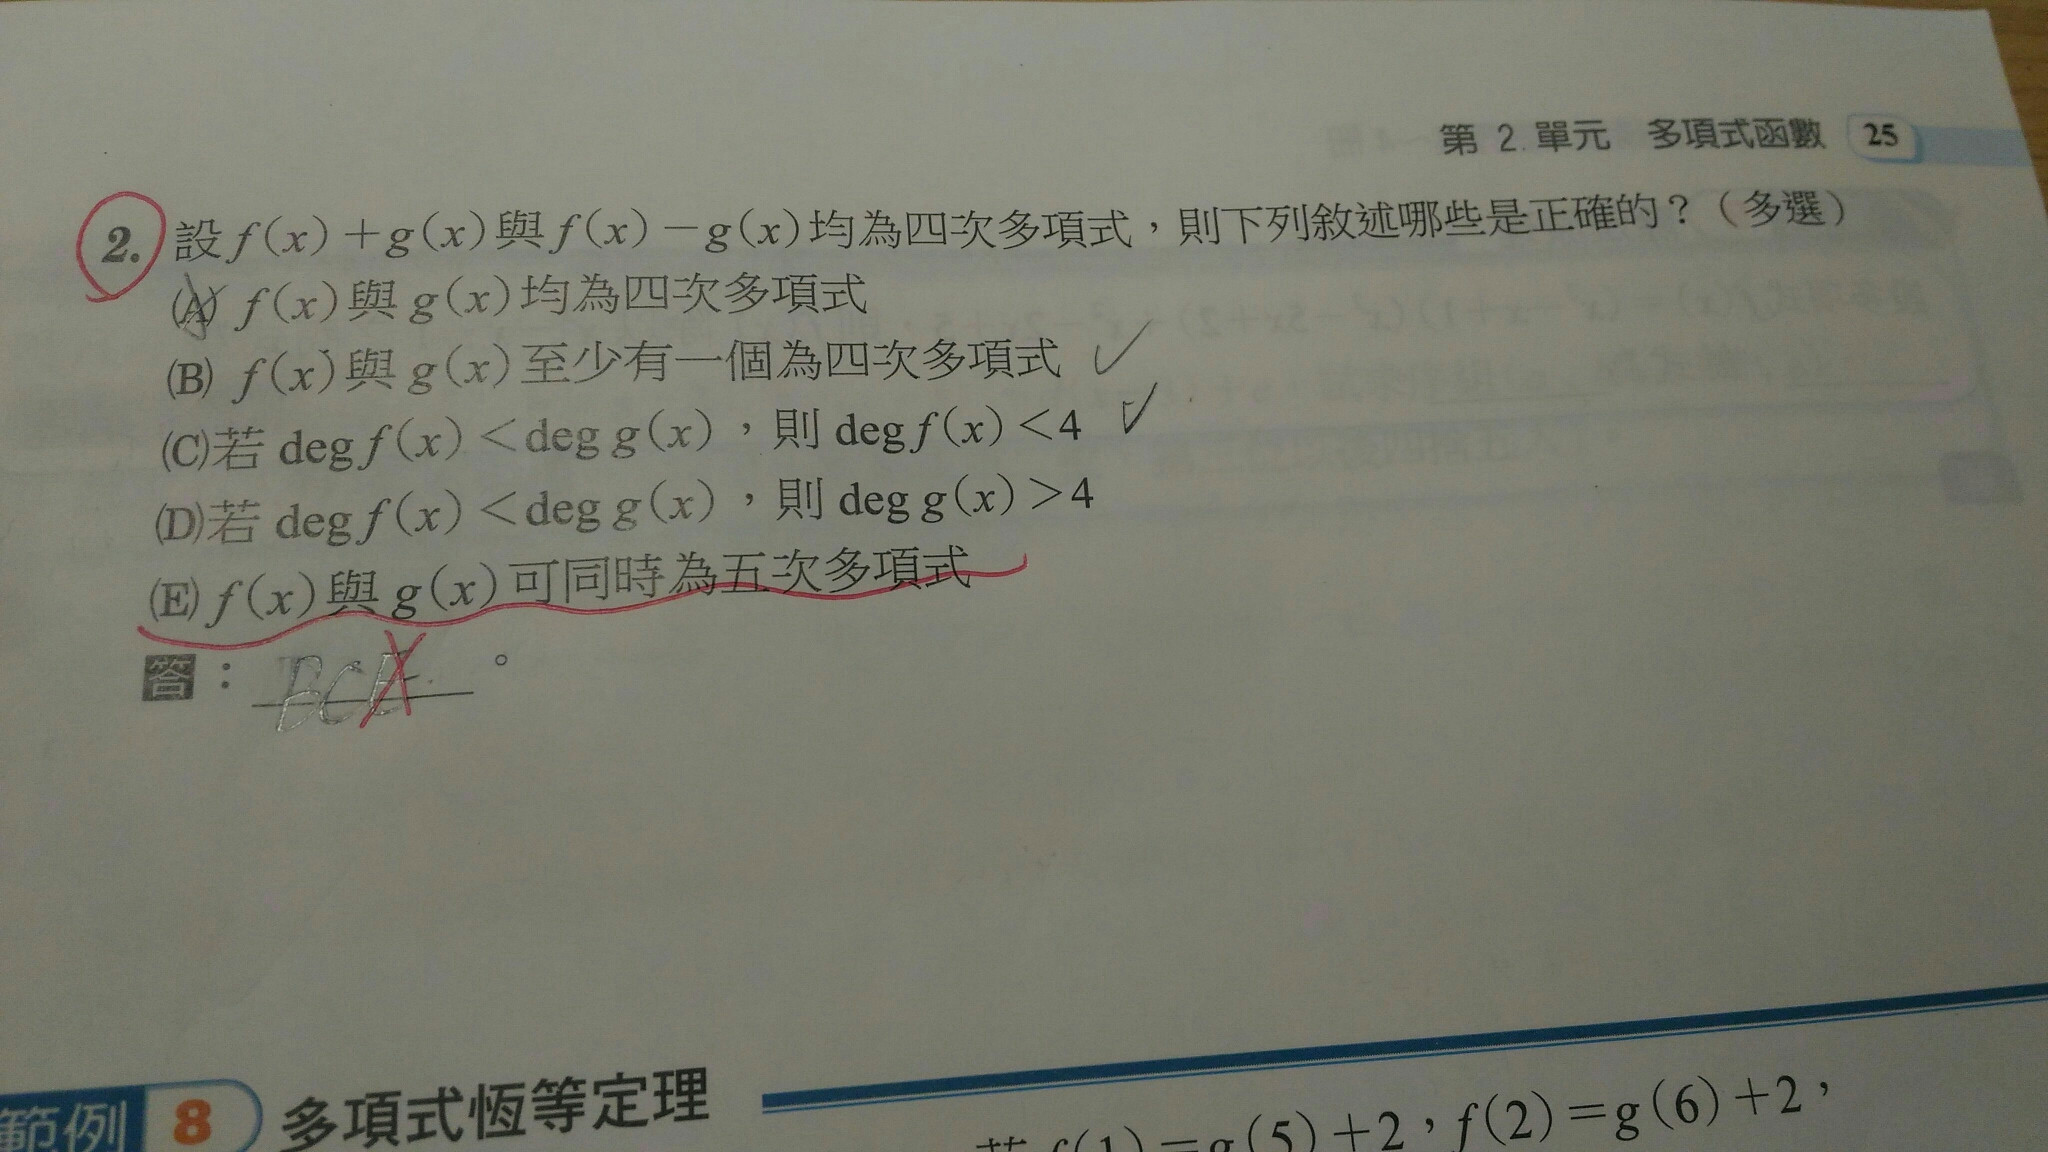 第 2. 單元 多項式函數 25
2. 設 f(x)+g(x)與f(x)-g(x)均為四次多項式,則下列敘述哪些是正確的?(多選)
(A) f(x)與 g(x)均為四次多項式
(B) f(x)與 g(x)至少有一個為四次多項式 ✓
(C)若 deg f(x)<deg g(x),則 deg f(x)<4 ✓
(D)若 deg f(x)<deg g(x),則 deg g(x)>4
(E) f(x)與 g(x)可同時為五次多項式
答: BCE 。
範例 8 多項式恆等定理
若 f(1)=g(5)+2,f(2)=g(6)+2,